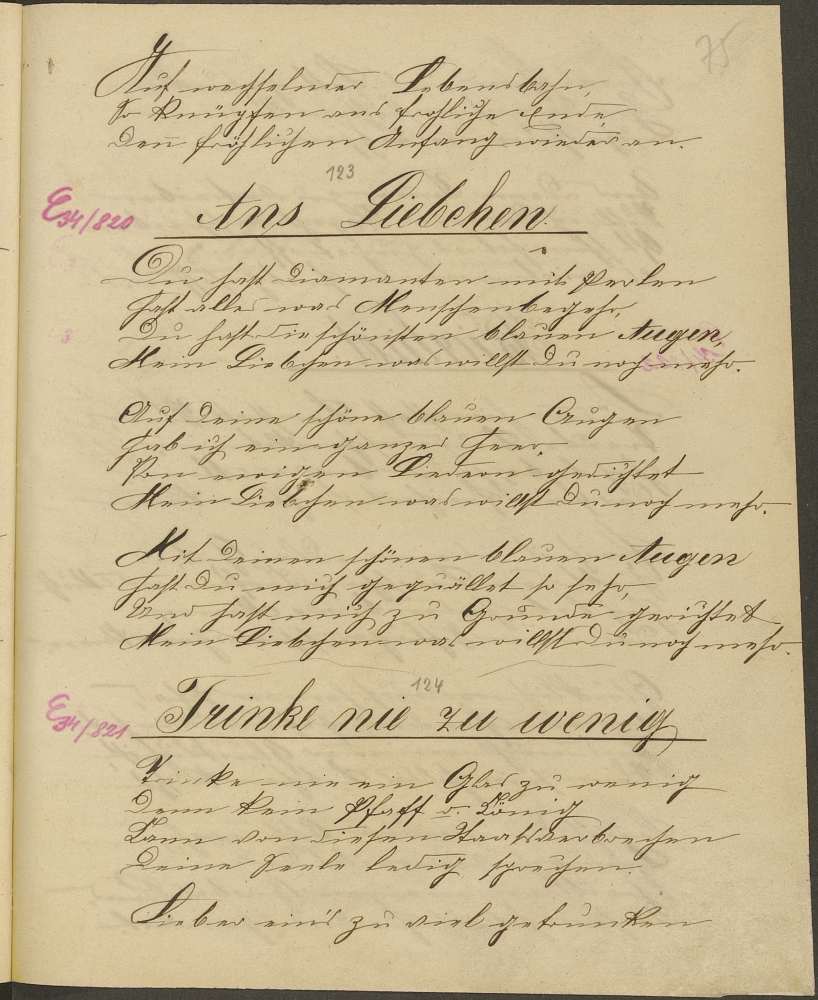 75
Auf wechselnder Lebensbahn,
So knüpfen ans frohliche Ende
Den̄ fröhlichen Anfang wieder an.
123
E34/820
Ans Liebchen.
Du hast Diamanten mit Perlen
Hast alles was Menschenbegehr,
Du hast die schönsten blauen Augen,
Mein Liebchen was willst Du noch mehr.
Auf deine schöne blauen Augen
Hab ich ein ganzes Heer,
Von ewigen Liedern gedichtet
Mein Liebchen was willst Du noch mehr.
Mit Deinen schönen blauen Augen
Hast Du mich gequället so sehr,
Und hast mich zu Grunde gerichtet
Mein Liebchen was willst Du noch mehr.
124
E34/821
Trinke nie zu wenig
Trinke nie ein Glas zu wenig
Denn kein Pfaff o. König
Kann von diesen Staatsverbrechen
Deine Seele ledig sprechen.
Lieber ein's zu viel getrunken